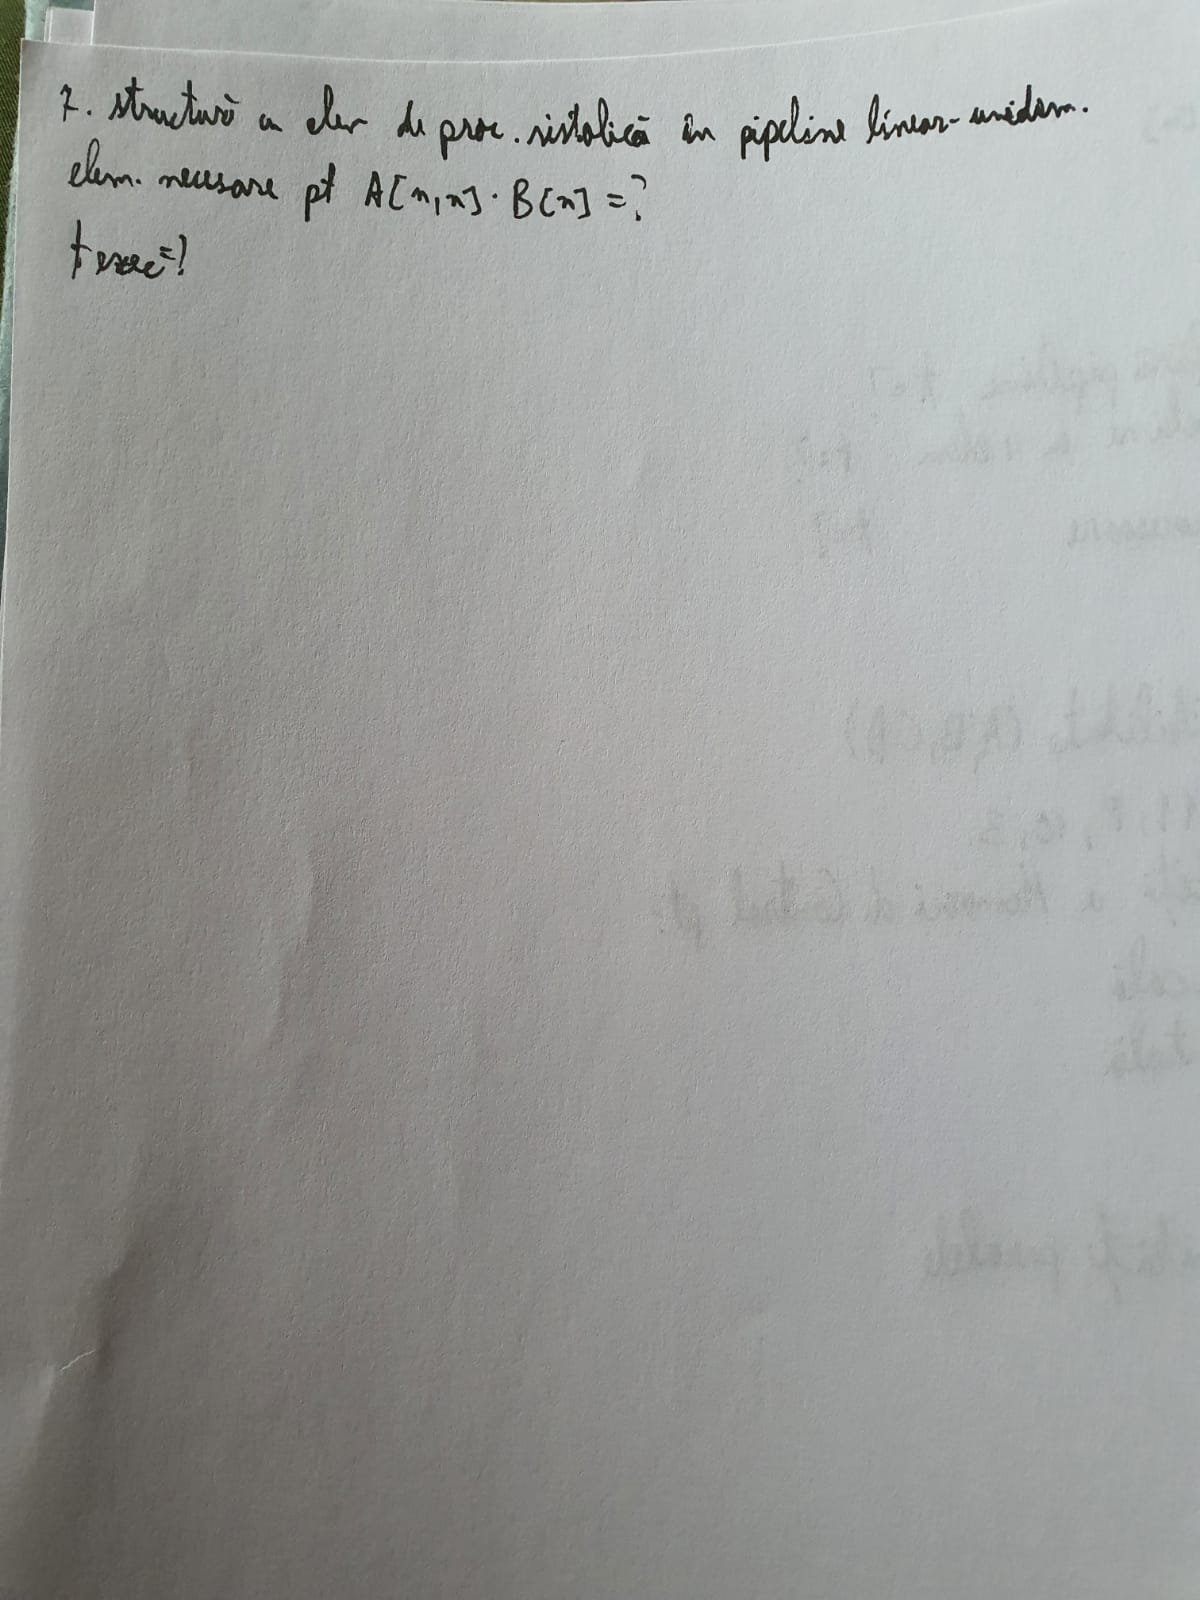 7. structură cu elem de proc. sistolică în pipeline linear-unidim.
elem. necesare pt A[n,n] · B[n] = ?
t exec = ?